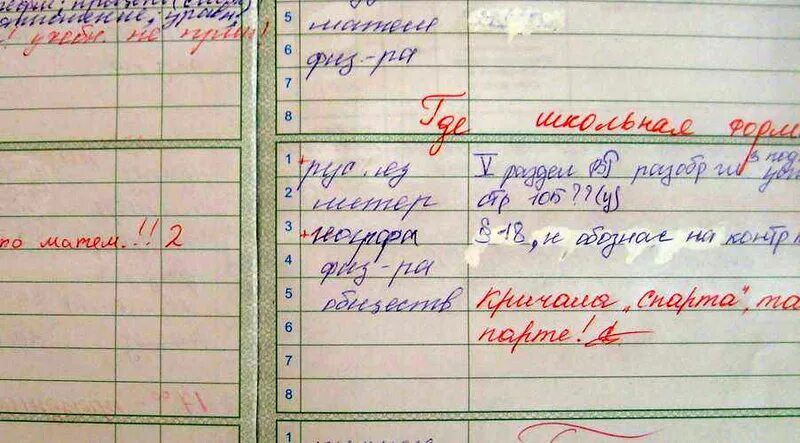 ! учебн. не прин!
по матем.!! 2
5 матем
6 физ-ра
7
8 Где школьная форм
1 рус. яз V раздел разобр
2 литер стр 105 ?? (у)
3 географ §-18, и обознач на контр
4 физ-ра
5 обществ Кричала „Спарта“, та
6 парте!
7
8
1